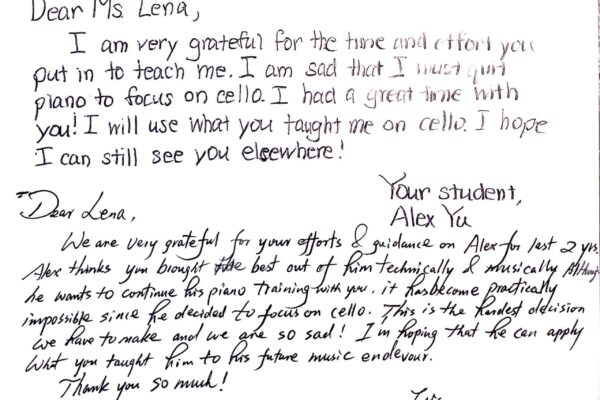 Dear Ms. Lena,
I am very grateful for the time and effort you
put in to teach me. I am sad that I must quit
piano to focus on cello. I had a great time with
you! I will use what you taught me on cello. I hope
I can still see you elsewhere!
Your student,
Alex Yu
Dear Lena,
We are very grateful for your efforts & guidance on Alex for last 2 yrs.
Alex thinks you brought the best out of him technically & musically
he wants to continue his piano training with you, it has become practically
impossible since he decided to focus on cello. This is the hardest decision
we have to make and we are so sad! I'm hoping that he can apply
what you taught him to his future music endevour.
Thank you so much!